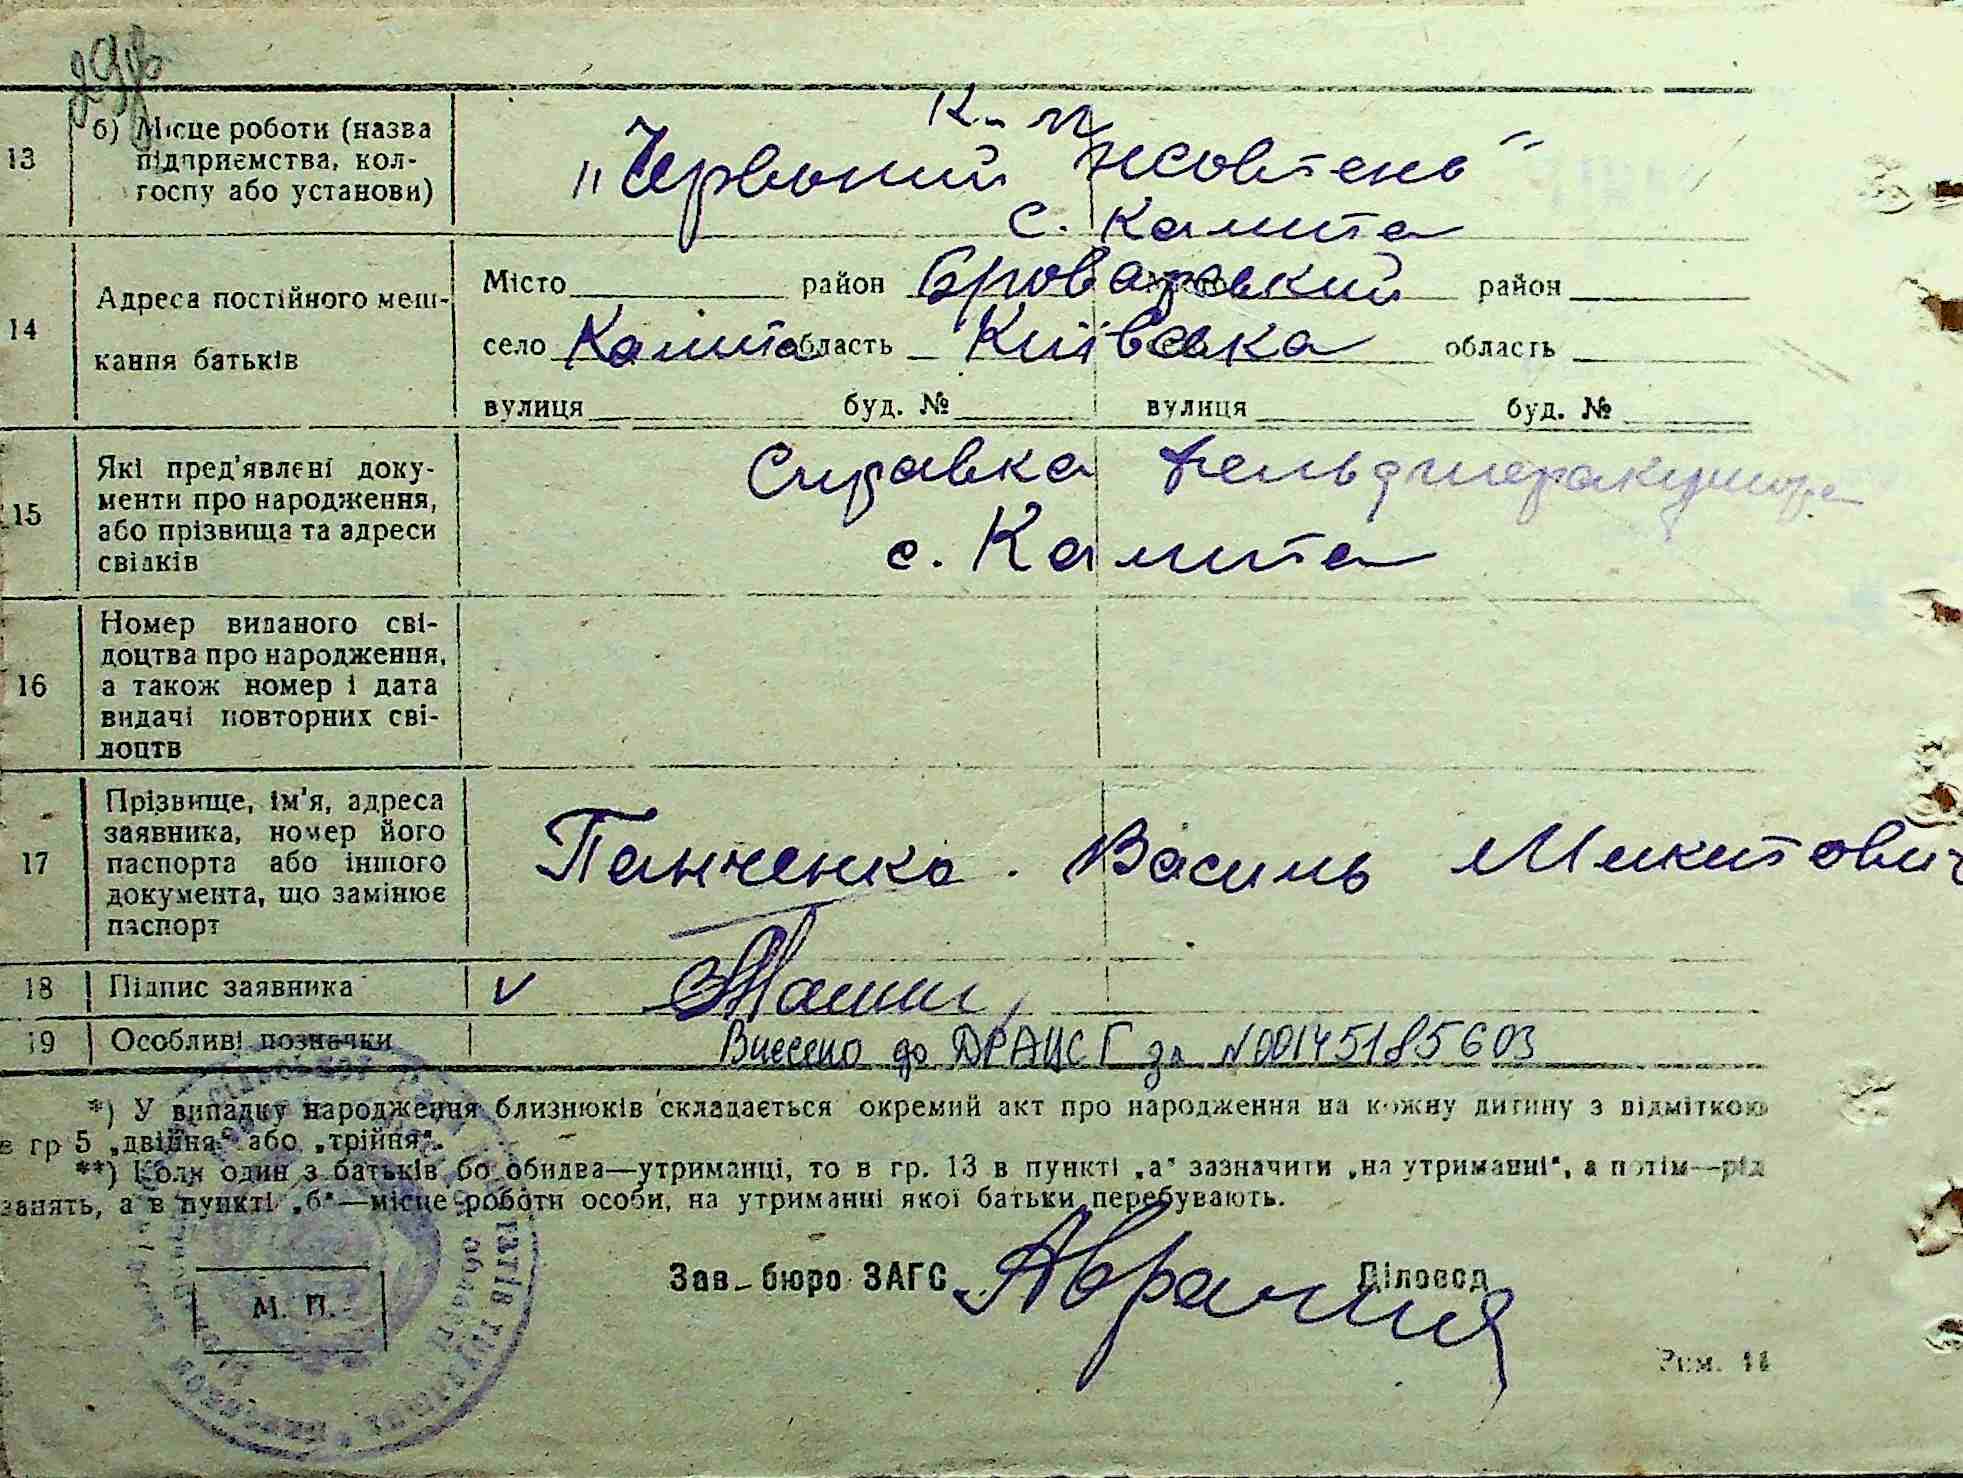 13 б) Місце роботи (назва підприємства, колгоспу або установи)
К-п
„Червоний Жовтень"
с. Калита
14 Адреса постійного мешкання батьків
Місто район Броварський район
село Калита область Київська область
вулиця буд. № вулиця буд. №
15 Які пред'явлені документи про народження, або прізвища та адреси свідків
Справка фельдшеракушора
с. Калита
16 Номер виданого свідоцтва про народження, а також номер і дата видачі повторних свідоцтв
17 Прізвище, ім'я, адреса заявника, номер його паспорта або іншого документа, що замінює паспорт
Панченко Василь Микитович
18 Підпис заявника v
19 Особливі позначки
Внесено до ДРАЦСГ за №00145185603
*) У випадку народження близнюків складається окремий акт про народження на кожну дитину з відміткою
в гр 5 „двійня" або „трійня".
**) Коли один з батьків бо обидва—утриманці, то в гр. 13 в пункті „а" зазначити „на утриманні", а потім—рід
занять, а в пункті „б"—місце роботи особи, на утриманні якої батьки перебувають.
Зав. бюро ЗАГС Діловод
М. П.